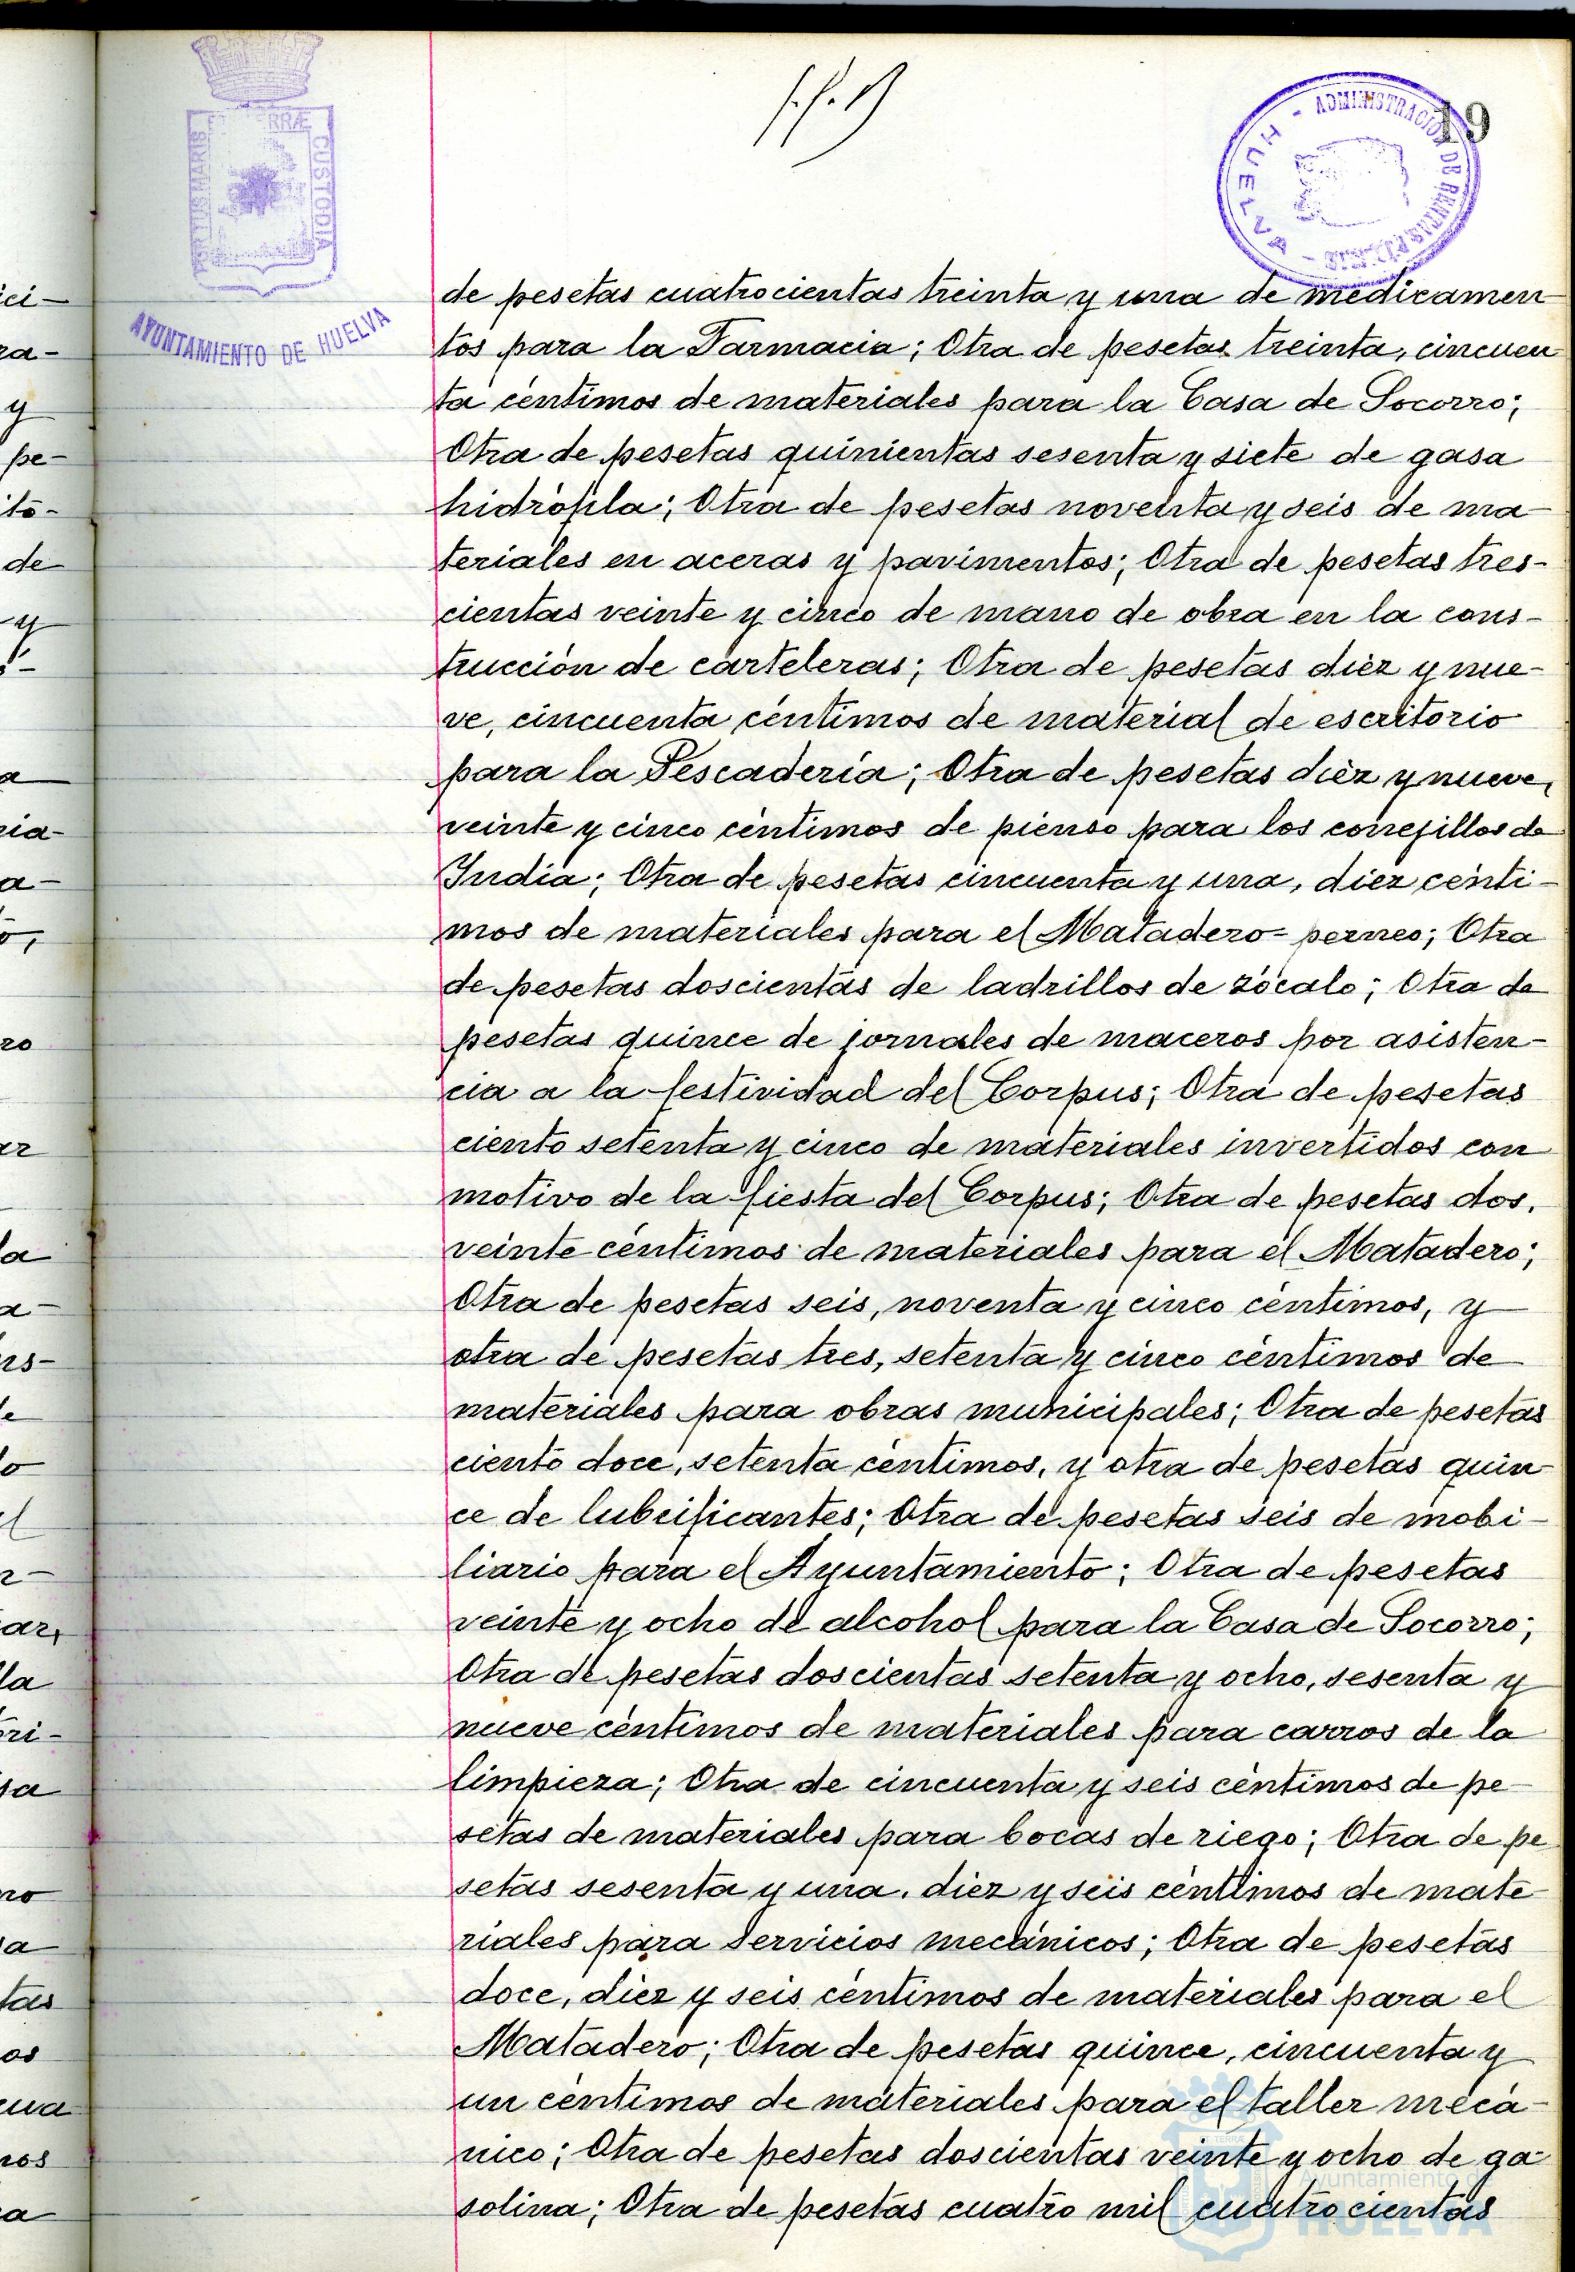 19
ADMINISTRACIÓN DE RENTAS PÚBLICAS
HUELVA
PORTUS MARIS ET TERRÆ CUSTODIA
AYUNTAMIENTO DE HUELVA
de pesetas cuatrocientas treinta y una de medicamen
tos para la Farmacia; Otra de pesetas treinta, cincuen
ta céntimos de materiales para la Casa de Socorro;
Otra de pesetas quinientas sesenta y siete de gasa
hidrófila; Otra de pesetas noventa y seis de ma-
teriales en aceras y pavimentos; Otra de pesetas tres-
cientas veinte y cinco de mano de obra en la cons-
trucción de carteleras; Otra de pesetas diez y nue-
ve, cincuenta céntimos de material de escritorio
para la Pescadería; Otra de pesetas diez y nueve,
veinte y cinco céntimos de pienso para los conejillos de
India; Otra de pesetas cincuenta y una, diez cénti-
mos de materiales para el Matadero=perneo; Otra
de pesetas doscientas de ladrillos de zócalo; Otra de
pesetas quince de jornales de maceros por asisten-
cia a la festividad del Corpus; Otra de pesetas
ciento setenta y cinco de materiales invertidos con
motivo de la fiesta del Corpus; Otra de pesetas dos,
veinte céntimos de materiales para el Matadero;
Otra de pesetas seis, noventa y cinco céntimos, y
otra de pesetas tres, setenta y cinco céntimos de
materiales para obras municipales; Otra de pesetas
ciento doce, setenta céntimos, y otra de pesetas quin
ce de lubrificantes; Otra de pesetas seis de mobi-
liario para el Ayuntamiento; Otra de pesetas
veinte y ocho de alcohol para la Casa de Socorro;
Otra de pesetas doscientas setenta y ocho, sesenta y
nueve céntimos de materiales para carros de la
limpieza; Otra de cincuenta y seis céntimos de pe-
setas de materiales para bocas de riego; Otra de pe
setas sesenta y una, diez y seis céntimos de mate
riales para servicios mecánicos; Otra de pesetas
doce, diez y seis céntimos de materiales para el
Matadero; Otra de pesetas quince, cincuenta y
un céntimos de materiales para el taller mecá-
nico; Otra de pesetas doscientas veinte y ocho de ga-
solina; Otra de pesetas cuatro mil cuatrocientas
Ayuntamiento de
HUELVA